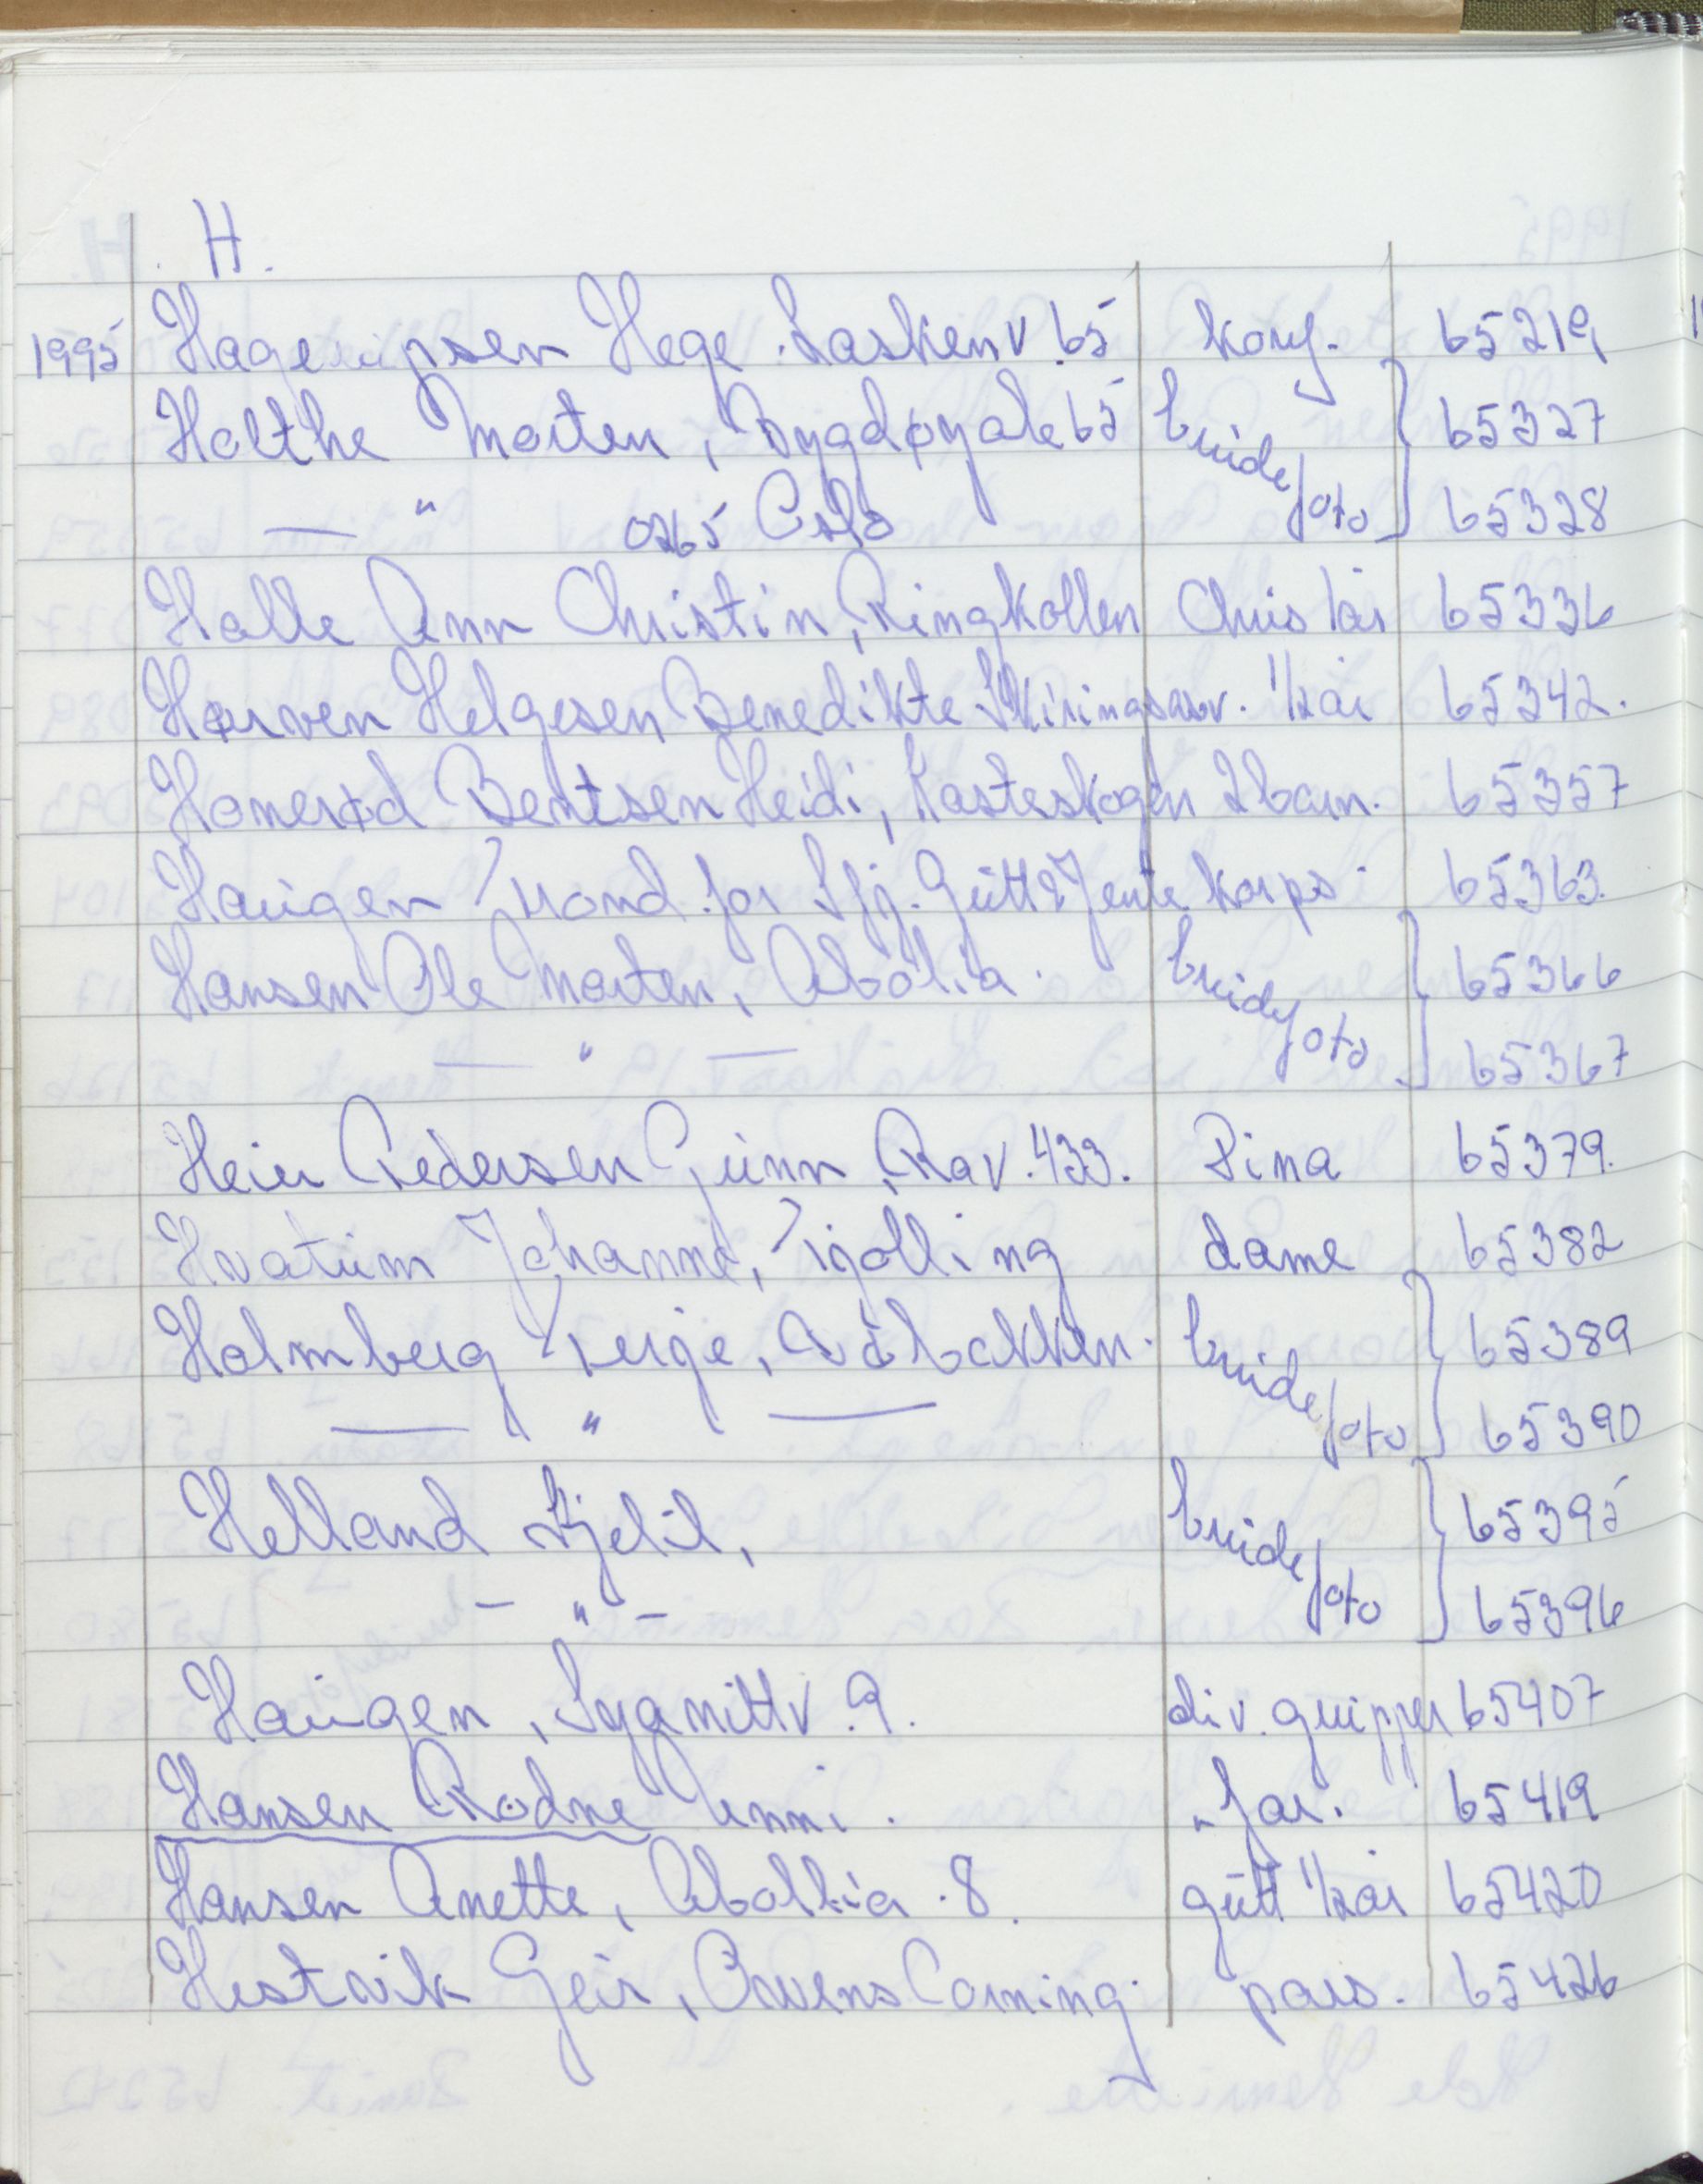 H.
1995 Hage Jepsen Hege. Laskenv. 65 konf. 65219
Holthe Morten, Bygdøyale 65 brude 65327
— " 0265 Oslo foto 65328
Halle Ann Christin, Ringkollen Chris 1år 65336
Harven Helgesen Benedikte Skiringsalv. 1/2 år 65342.
Homerød Bentsen Heidi, Kasteskogen 2barn. 65357
Haugen Trond for Sfj. Gutt & Jente korps. 65363.
Hansen Ole Morten, Åbolia. brude 65366
— " — foto 65367
Heier Pedersen Gunn, Rav. 433. Pima 65379.
Hvatum Johanne, Tjølling dame 65382
Holmberg Terje, Dåbakken. brude 65389
— " — foto 65390
Helland Kjetil, brude 65395
- " - foto 65396
Haugen, Lyamittv. 9. div. grupper 65407
Hansen Rødne Unni. " far. 65419
Hansen Anette, Åbollia. 8. gutt 1/2 år 65420
Hestvik Geir, Owens Corning. pass. 65426